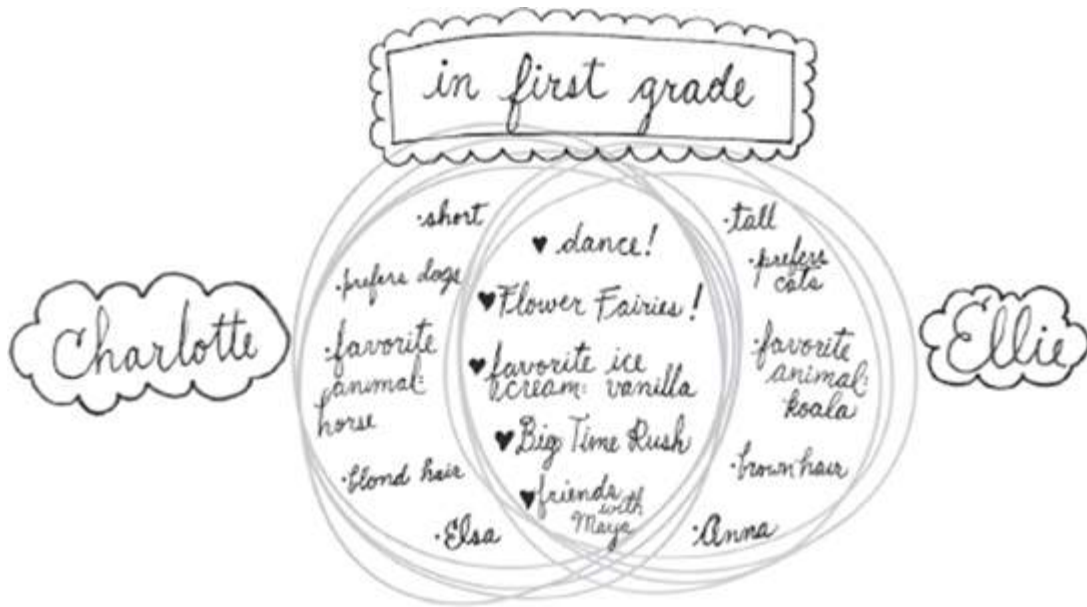 in first grade
Charlotte
·short
·prefers dogs
·favorite
animal:
horse
·blond hair
·Elsa
♥ dance!
♥ Flower Fairies!
♥ favorite ice
cream: vanilla
♥ Big Time Rush
♥ friends
with
Maya
·tall
·prefers
cats
·favorite
animal:
koala
·brown hair
·Anna
Ellie